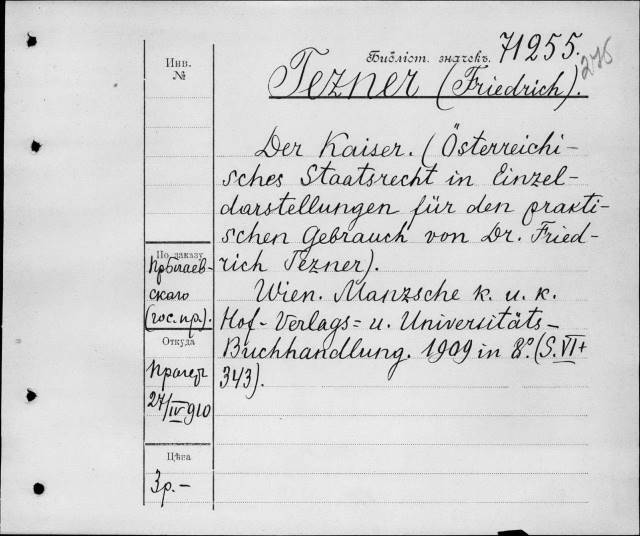 Библіот. значекъ. 71255.
275
Инв.
№
Tezner (Friedrich).
Der Kaiser. (Österreichi-
sches Staatsrecht in Einzel-
darstellungen für den prakti-
schen Gebrauch von Dr. Fried-
rich Tezner).
Wien. Manzsche k. u. k.
Hof-Verlags= u. Universitäts-
Buchhandlung. 1909 in 8.º (S. VI+
343).
По заказу
скаго
(гос. пр.).
Откуда
27/IV 910
Цѣна
3р.-